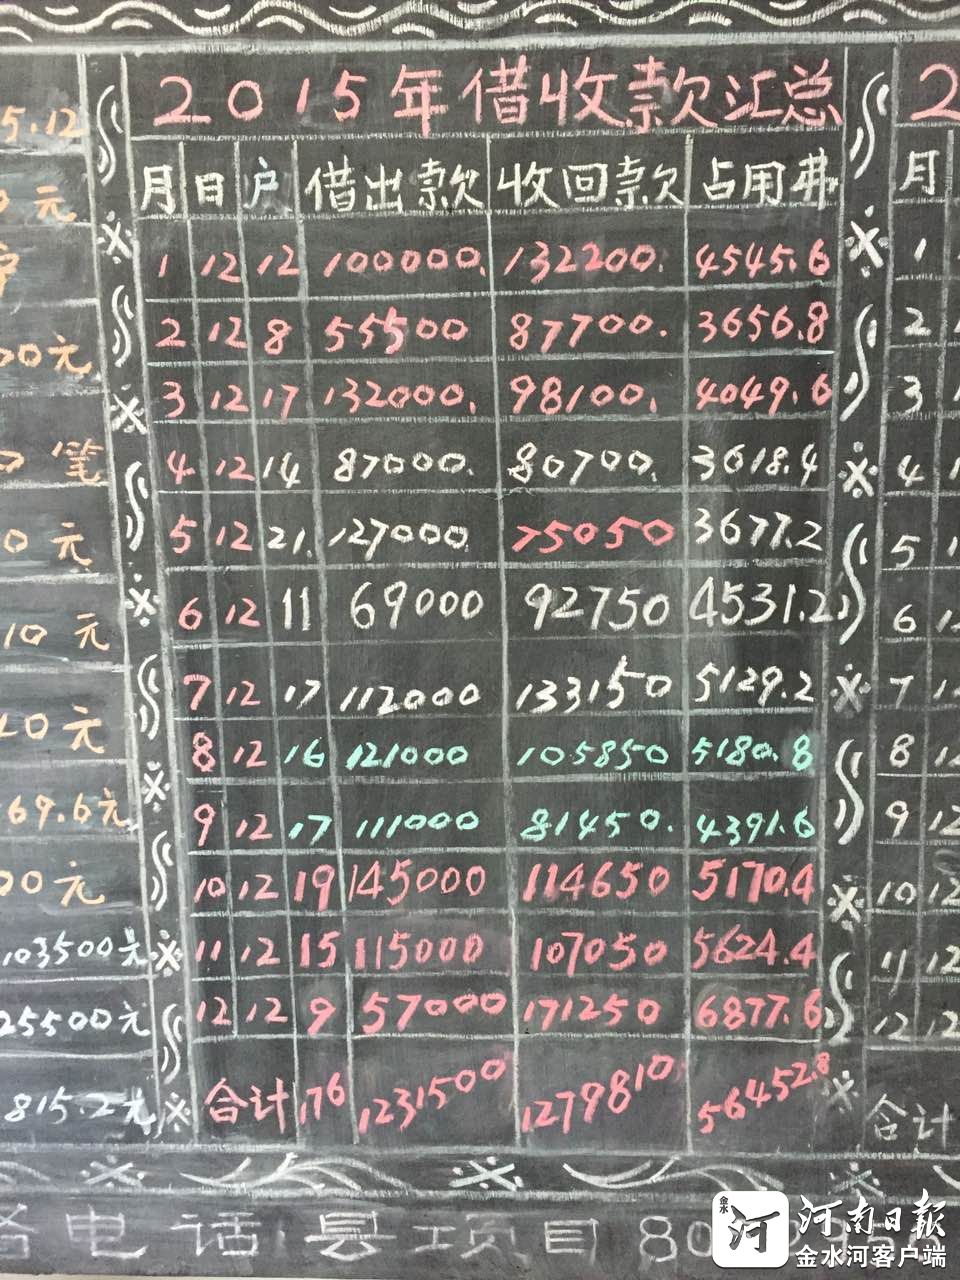 2015年借收款汇总
月 日 户 借出款 收回款 占用费
1 12 12 100000. 132200. 4545.6
2 12 8 55500 87700. 3656.8
3 12 17 132000. 98100. 4049.6
4 12 14 87000. 80700. 3618.4
5 12 21. 127000. 75050 3677.2
6 12 11 69000 92750 4531.2
7 12 17 112000 133150 5129.2
8 12 16 121000 105850 5180.8
9 12 17 111000 81450. 4391.6
10 12 19 145000 114650 5170.4
11 12 15 115000 107050 5624.4
12 12 9 57000 171250 6877.6
合计 176 1231500 1279810 56452.8
5.12
0元
00元
0笔
0元
10元
40元
69.6元
00元
103500元
25500元
815.2元
2
月
1
2
3
4
5
6
7
8
9 12
10 12
11 12
12 12
合计
电话县项目80
金水
河
河南日报
金水河客户端